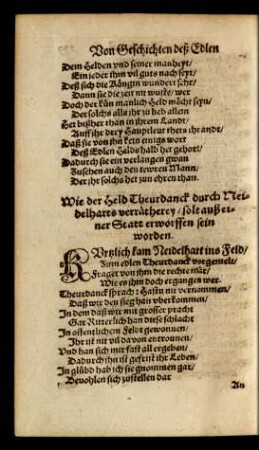 Von Geschichten deß Edlen
Dem Helden vnd seiner manheyt/
Ein jeder jhm vil guts nach seyt/
Deß sich die Köngin wundert sehr/
Dann sie die zeit nit wuste/ wer
Doch der kün manlich Held möcht seyn/
Der solchs alls jhr zu lieb allein
Het bißher than in jhrem Landt/
Auff jhr drey Hauptleut thets jhr andt/
Daß sie von jhn keins einigs wort
Deß Edlen Helds halb het gehört/
Dadurch sie ein verlangen gwan
Zusehen auch den tewren Mann/
Der jhr solchs het zun ehren than.
Wie der Held Theurdanck durch Nei-
delharts verrätherey/ solt auß ei-
ner Statt erworffen sein
worden.
KUrtzlich kam Neidelhart ins Feld/
Zum edlen Theurdanck vorgemelt/
Fraget von jhm die rechte mär/
Wie es jhm doch ergangen wer.
Theurdanck sprach: Hastu nit vernommen/
Daß wir den sieg han vberkommen/
In dem daß wir mit grosser pracht
Gar Ritterlich han diese schlacht
In offentlichem Feldt gewonnen/
Ihr ist nit vil davon entronnen/
Vnd han sich mir fast all ergeben/
Dadurch jhn ist gefrist jhr Leben/
In glübd hab ich sie gnommen gar/
Bevohlen sich zustellen dar
An